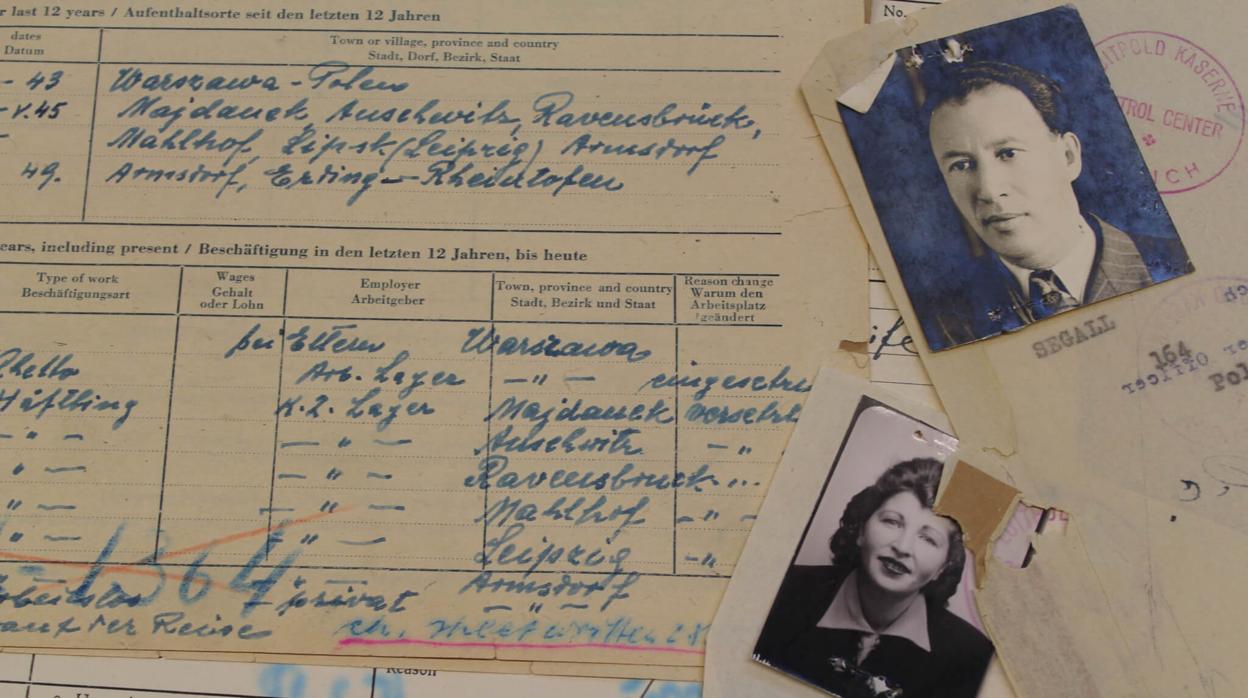 r last 12 years / Aufenthaltsorte seit den letzten 12 Jahren
No.
dates
Datum
Town or village, province and country
Stadt, Dorf, Bezirk, Staat
- 43 Warszawa - Polen
-V.45 Majdanek, Auschwitz, Ravensbrück,
Mahlhof, Lipsk (Leipzig) Armsdorf
49. Armsdorf, Erding - Rheinhofen
ears, including present / Beschäftigung in den letzten 12 Jahren, bis heute
Type of work
Beschäftigungsart
Wages
Gehalt
oder Lohn
Employer
Arbeitgeber
Town, province and country
Stadt, Bezirk und Staat
Reason change
Warum den
Arbeitsplatz
geändert
bei Eltern Warszawa
Ghetto Arb. Lager -"-
Häftling K.Z. Lager Majdanek versetzt
-"- -"- Auschwitz -"
"- -"- Ravensbruck "
"- -"- Mahlhof -"-
-"- Leipzig -"-
1364
arbeitslos - privat Armsdorf
-"-
auf der Reise
Reason
ITPOLD KASERNE
TROL CENTER
ICH
SEGALL
164
Pol
ife